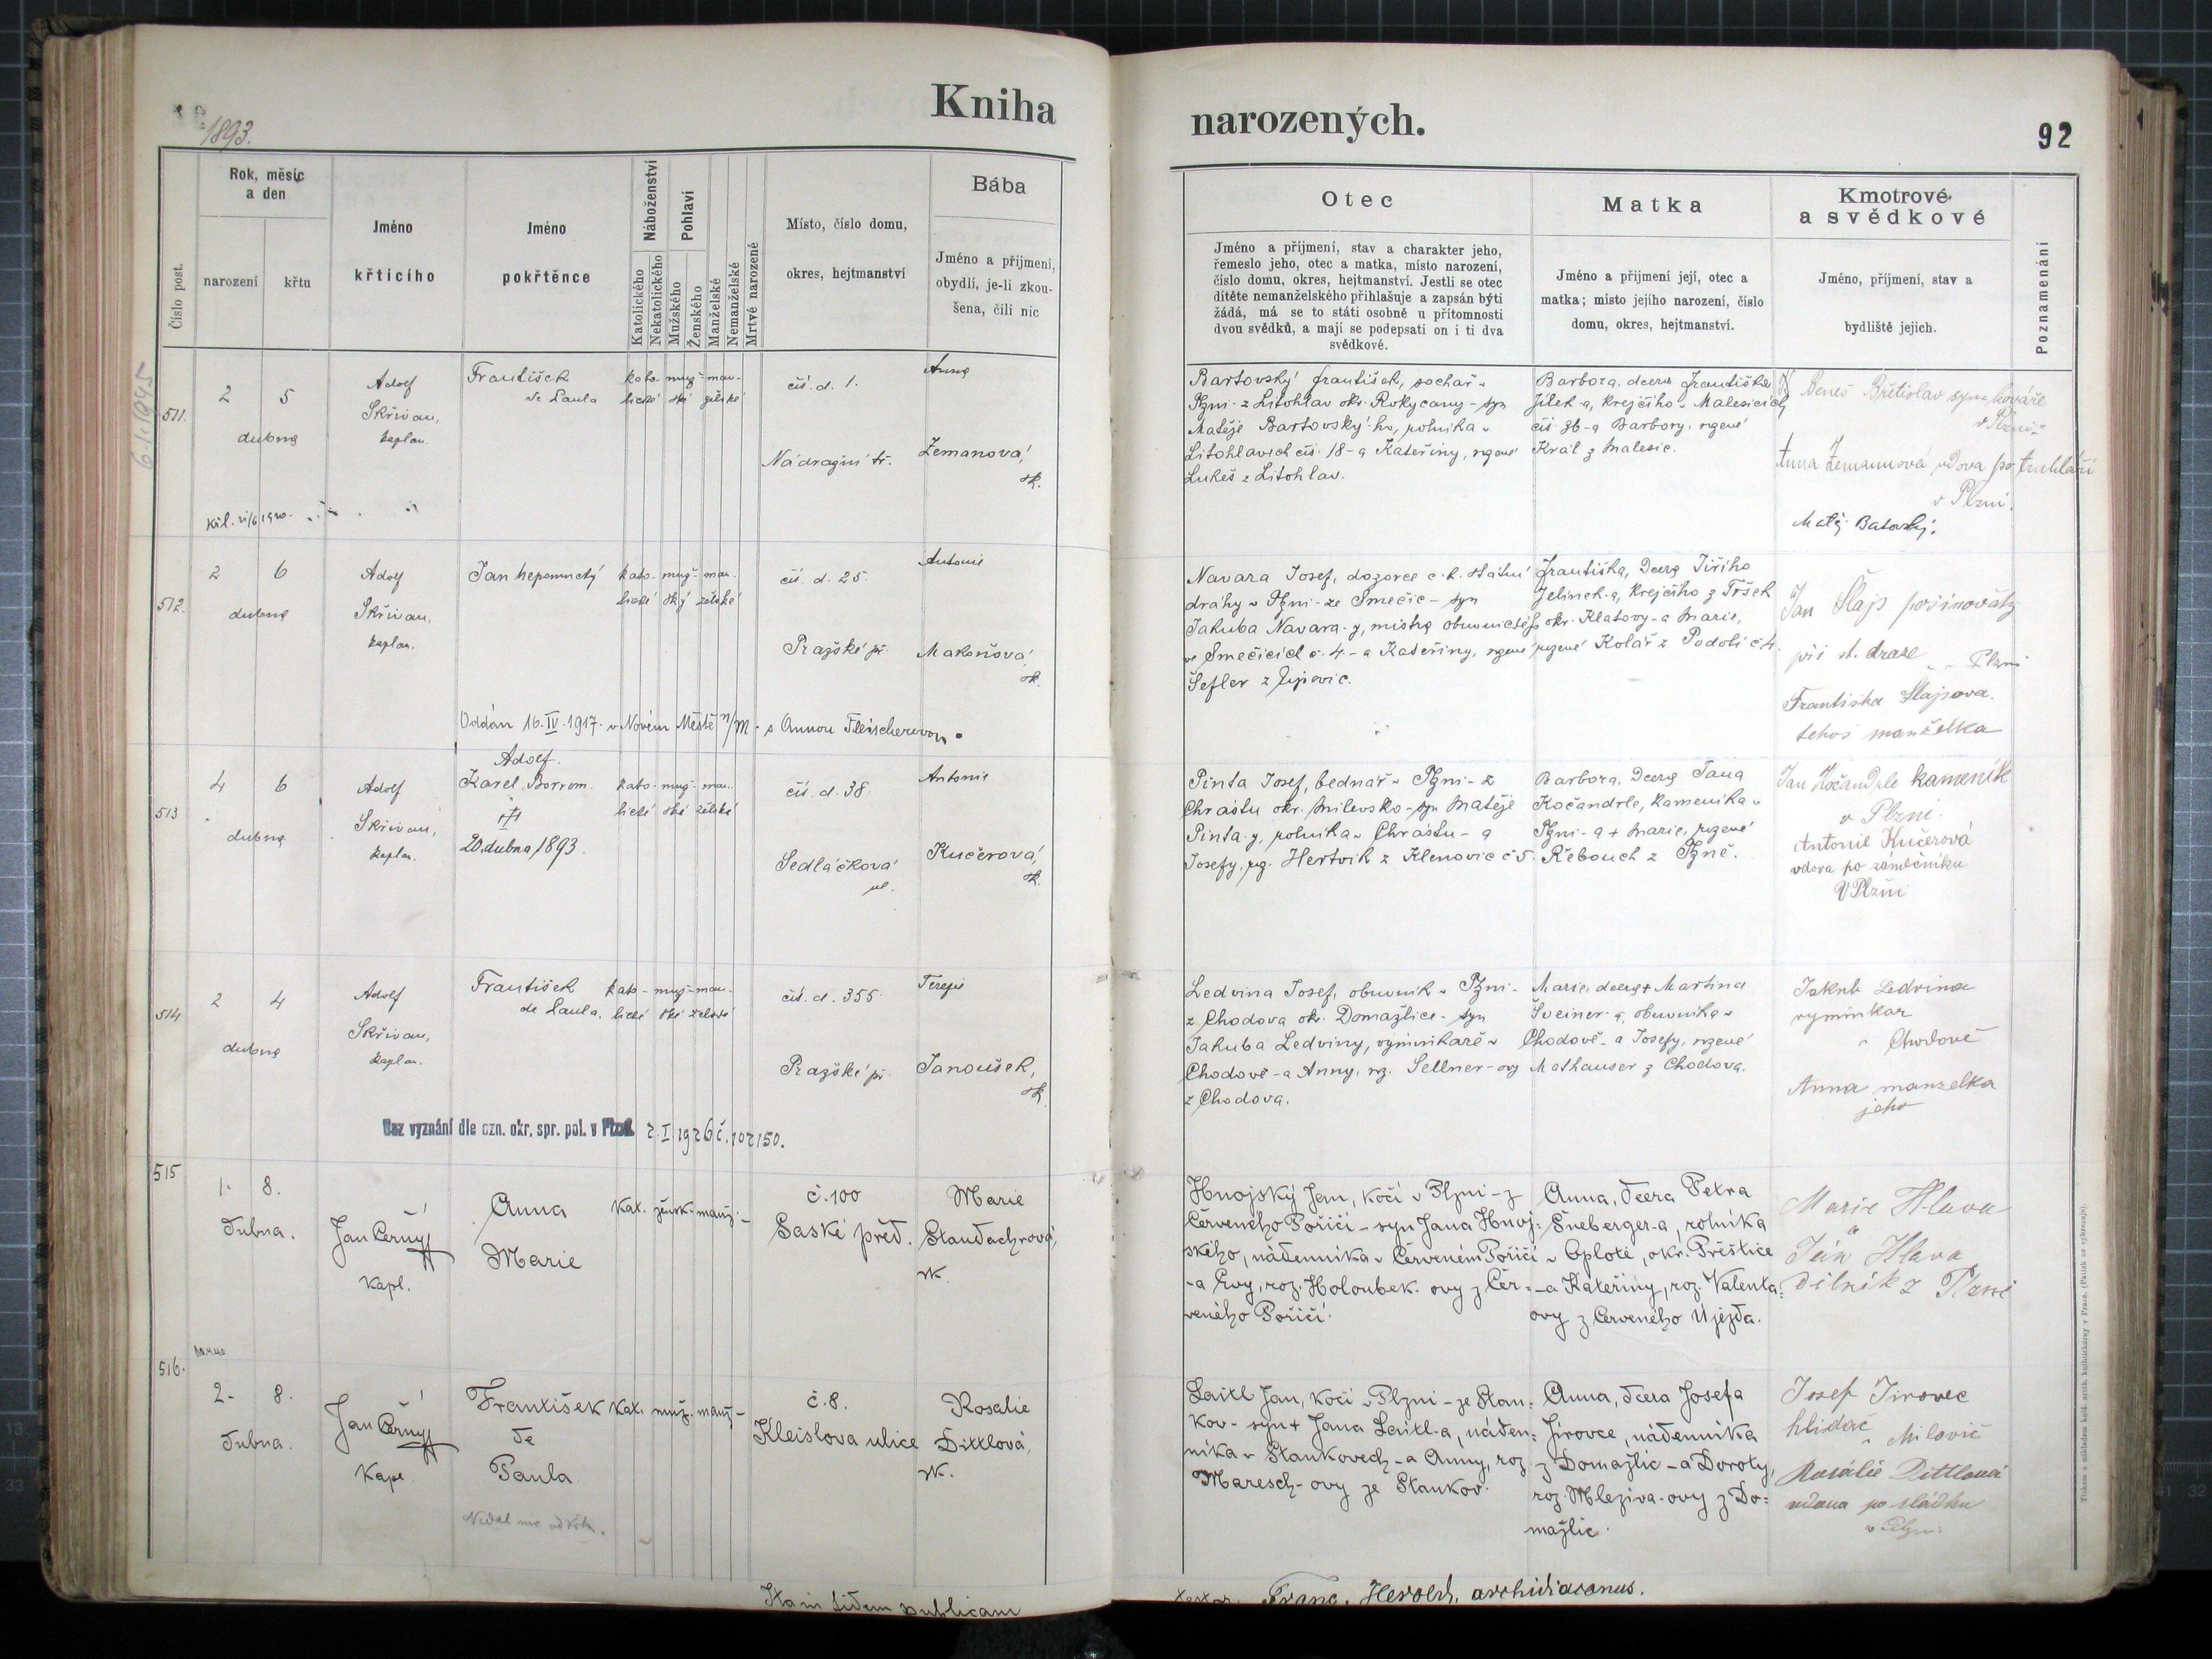 1893.
Kniha
narozených.
92
Číslo post.
Rok, měsíc
a den
narození
křtu
Jméno
křtícího
Jméno
pokřtěnce
Náboženství
Katolického
Nekatolického
Pohlaví
Mužského
Ženského
Manželské
Nemanželské
Mrtvě narozené
Místo, číslo domu,
okres, hejtmanství
Bába
Jméno a přijmení,
obydlí, je-li zkou-
šena, čili nic
Otec
Jméno a přijmení, stav a charakter jeho,
řemeslo jeho, otec a matka, místo narození,
číslo domu, okres, hejtmanství. Jestli se otec
dítěte nemanželského přihlašuje a zapsán býti
žádá, má se to státi osobně u přítomnosti
dvou svědků, a mají se podepsati on i ti dva
svědkové.
Matka
Jméno a přijmení její, otec a
matka; místo jejího narození, číslo
domu, okres, hejtmanství.
Kmotrové
a svědkové
Jméno, příjmení, stav a
bydliště jejich.
Poznamenání
511.
2 5
dubna
Adolf
Skřivan,
kaplan.
František
de Paula
kato- muž- man-
lické ské želské
čís. d. 1.
Nádražní tř.
Anna
Zemanová,
zk.
Bartovský František, sochař v
Plzni - z Litohlav okr. Rokycany - syn
Matěje Bartovský-ho, rolníka v
Litohlavech čís. 18 - a Kateřiny, rozené
Lukeš z Litohlav.
Barbora, dcera Františka
Jílek-a, krejčího v Malesicích
čís 36 - a Barbory, rozené
Král z Malesic.
Beneš Břetislav syn kováře
v Plzni
Anna Zemannová vdova po truhláři
v Plzni.
Matěj Batovský.
512.
2 6
dubna
Adolf
Skřivan,
kaplan.
Jan Nepomucký
kato- muž- man-
lické ský želské
čís. d. 25.
Pražské př.
Antonie
Makoňová,
zk.
Oddán 16. IV. 1917 v Novém Městě n/M. s Annou Fleischerovou.
Navara Josef, dozorce c. k. státní
dráhy v Plzni - ze Smečic - syn
Jakuba Navara-y, mistra obuvnického
ve Smečicích č. 4 - a Kateřiny, rozené
Šefler z
Františka, dcera Jiřího
Jelínek-a, krejčího z Tršek
okr. Klatovy - a Marie,
rozené Kolář z Podolí č 4.
Jan Šlajs pošinovatý
při st. draze v Plzni
Františka Šlajsova
tehož manželka
513
4 6
dubna
Adolf
Skřivan,
kaplan.
Adolf
Karel Borrom.
20. dubna 1893.
kato- muž- man-
lické ské želské
čís. d. 38.
Sedláčkova
ul.
Antonie
Kučerová,
zk.
Pinta Josef, bednář v Plzni - z
Chrástu okr. Milevsko - syn Matěje
Pinta-y, rolníka v Chrástu - a
Josefy, roz. Hertvík z Klenovic č 5.
Barbora, dcera Jana
Kočandrle, kameníka v
Plzni - a + Marie, rozené
Řebouch z Plzně.
Jan Kočandrle kameník
v Plzni.
Antonie Kučerová
vdova po zámečníku
v Plzni
514
2 4
dubna
Adolf
Skřivan,
kaplan.
František
de Paula.
kato- muž- man-
lické ské želské
čís. d. 355.
Pražské př.
Terezie
Janoušek,
zk.
Bez vyznání dle ozn. okr. spr. pol. v Plzni 2. I. 1926 č. 102150.
Ledvina Josef, obuvník v Plzni -
z Chodova okr. Domažlice - syn
Jakuba Ledviny, výminkaře v
Chodově - a Anny, roz. Sellner-ovy
z Chodova.
Marie, dcera + Martina
Šveiner-a, obuvníka v
Chodově - a Josefy, rozené
Mathauser z Chodova.
Jakub Ledvina
vyminkar
v Chodově
Anna manzelka
jeho
515
1. 8.
Dubna.
Jan Černý
Kapl.
Anna
Marie
Kat. žensk. manž. -
č. 100
Saské před.
Marie
Staudachrová,
zk.
Hnojský Jan, kočí v Plzni - z
Červeného Poříčí - syn Jana Hnoj:
ského, nádenníka v Červeném Poříčí
- a Evy, roz. Holoubek-ovy z Čer:
veného Poříčí.
Anna, dcera Petra
Šneberger-a, rolníka
v Oplotě, okr. Přeštice
- a Kateřiny, roz. Valenta-
ovy z Červeného Újezda.
Marie Hlava
a
Ján Hlava
dilník z Plzně
516.
2 - 8.
Dubna.
Jan Černý
Kapl.
František
de
Paula
Kat. muž. manž -
č. 8.
Kleislova ulice
Rosalie
Dittlová,
zk.
Laitl Jan, kočí v Plzni - ze Stan:
kov - syn + Jana Laitl-a, náden:
níka v Stankovech - a Anny, roz
Maresch-ovy ze Stankov.
Anna, dcera Josefa
Jírovce, nádenníka
z Domažlic - a Doroty,
roz. Mleziva-ovy z Do:
mažlic.
Josef Jirovec
hlídač v Milavič
Rosálie Dittlová
vdova po sládku
v Plzni
In fidem publicam
Franc. Herold, archidiaconus.